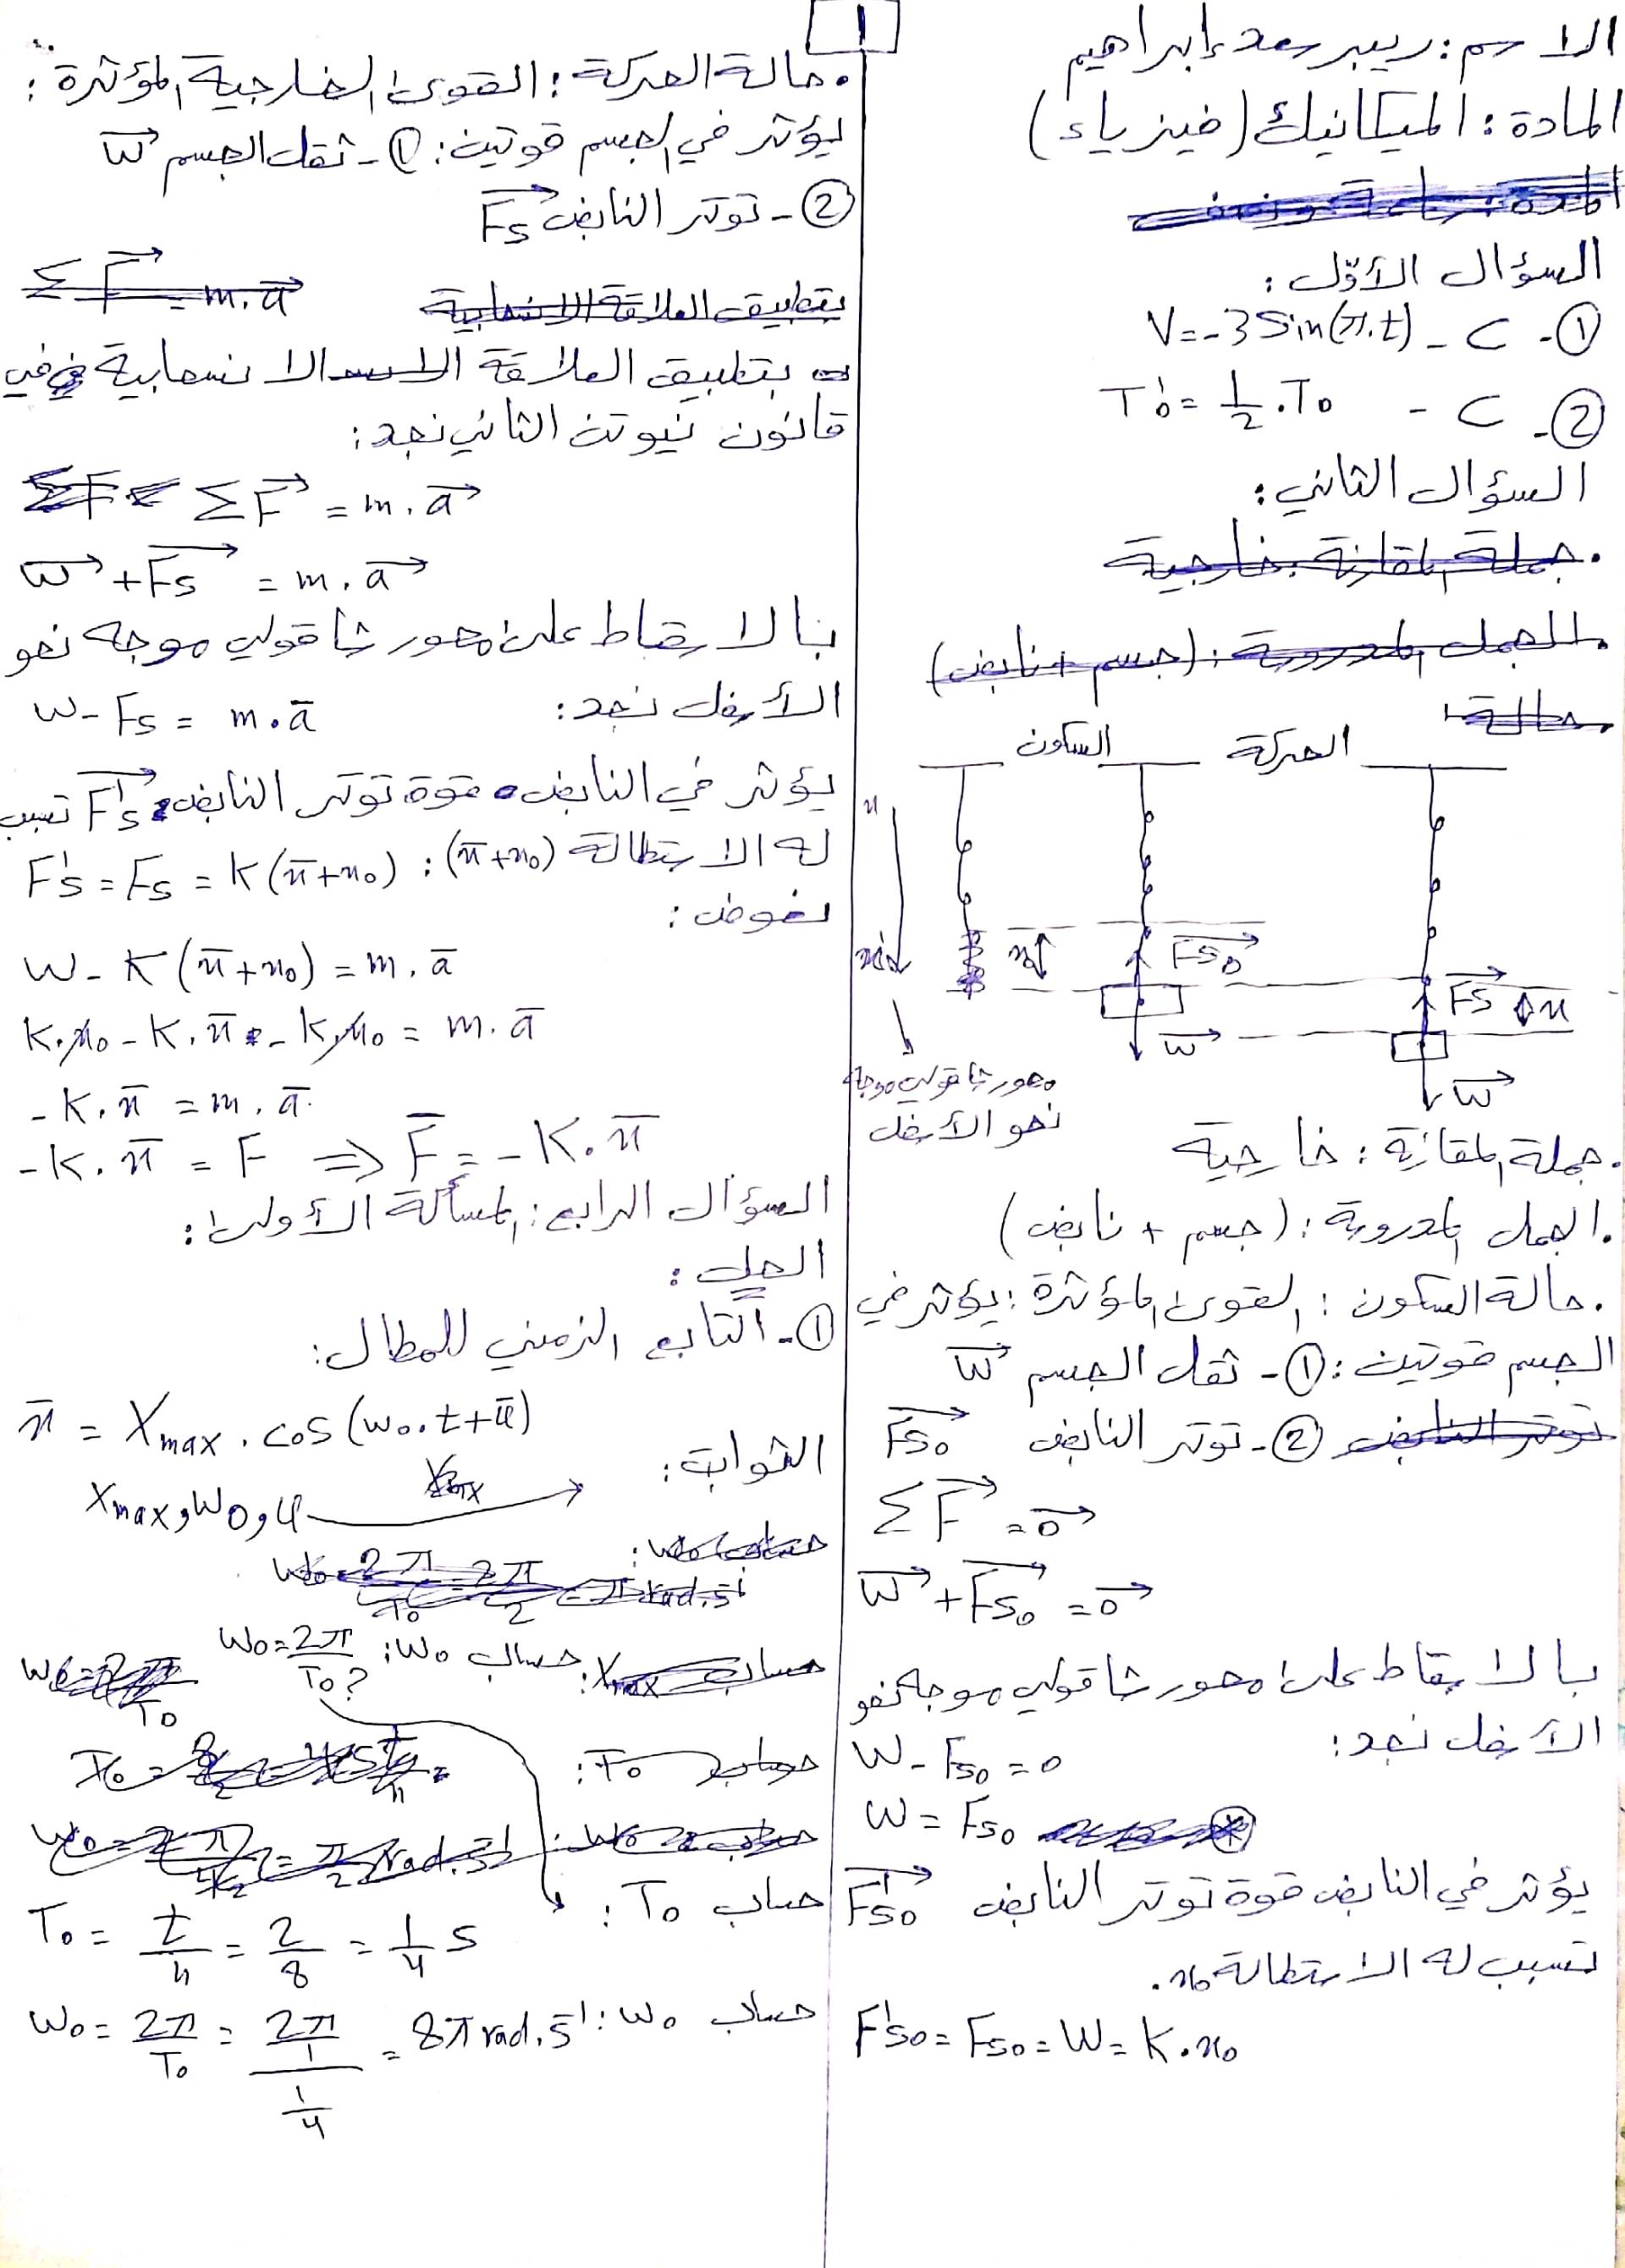 1
الاسم: ريبر سعد إبراهيم
المادة: الميكانيك (فيزياء)
السؤال الأوّل:
① - C - V = -3 Sin(π.t)
② - C - T'0 = 1/2 . T0
السؤال الثاني:
جملة المقارنة خارجية
الجمل المدروسة: (جسم + نابض)
حالة:
السكون
الحركة
x
x0
Fs0
Fs
x
W
W
x'
محور شاقولي موجه
نحو الأسفل
. جملة المقارنة: خارجية
. الجمل المدروسة: (جسم + نابض)
. حالة السكون: القوى المؤثرة: يؤثر في
الجسم قوتين: ① - ثقل الجسم W
توتر النابض ② - توتر النابض Fs0
ΣF = 0
W + Fs0 = 0
بالاسقاط على محور شاقولي موجه نحو
الأسفل نجد:
W - Fs0 = 0
W = Fs0
يؤثر في النابض قوة توتر النابض F's0
تسبب له الاستطالة x0.
F's0 = Fs0 = W = K . x0
. حالة الحركة: القوى الخارجية المؤثرة:
يؤثر في الجسم قوتين: ① - ثقل الجسم W
② - توتر النابض Fs
بتطبيق العلاقة الانسحابية ΣF = m.a
بتطبيق العلاقة الانسحابية في
قانون نيوتن الثاني نجد:
ΣF = m . a
W + Fs = m . a
بالاسقاط على محور شاقولي موجه نحو
الأسفل نجد: W - Fs = m . a
يؤثر في النابض قوة توتر النابض F's تسبب
له الاستطالة (x + x0) : F's = Fs = K (x + x0)
نعوض:
W - K (x + x0) = m . a
K . x0 - K . x - K . x0 = m . a
- K . x = m . a
- K . x = F ⇒ F = - K . x
السؤال الرابع: المسألة الأولى:
الحل:
① - التابع الزمني للمطال:
x = Xmax . cos (w0 . t + φ)
الثوابت:
Xmax, W0, φ
W0 = 2π/T0 = 2π/2 = π rad.s⁻¹
حساب W0: W0 = 2π/T0 ?
حساب T0:
حساب T0: T0 = t/n = 2/8 = 1/4 s
حساب W0: W0 = 2π/T0 = 2π/1/4 = 8π rad.s⁻¹